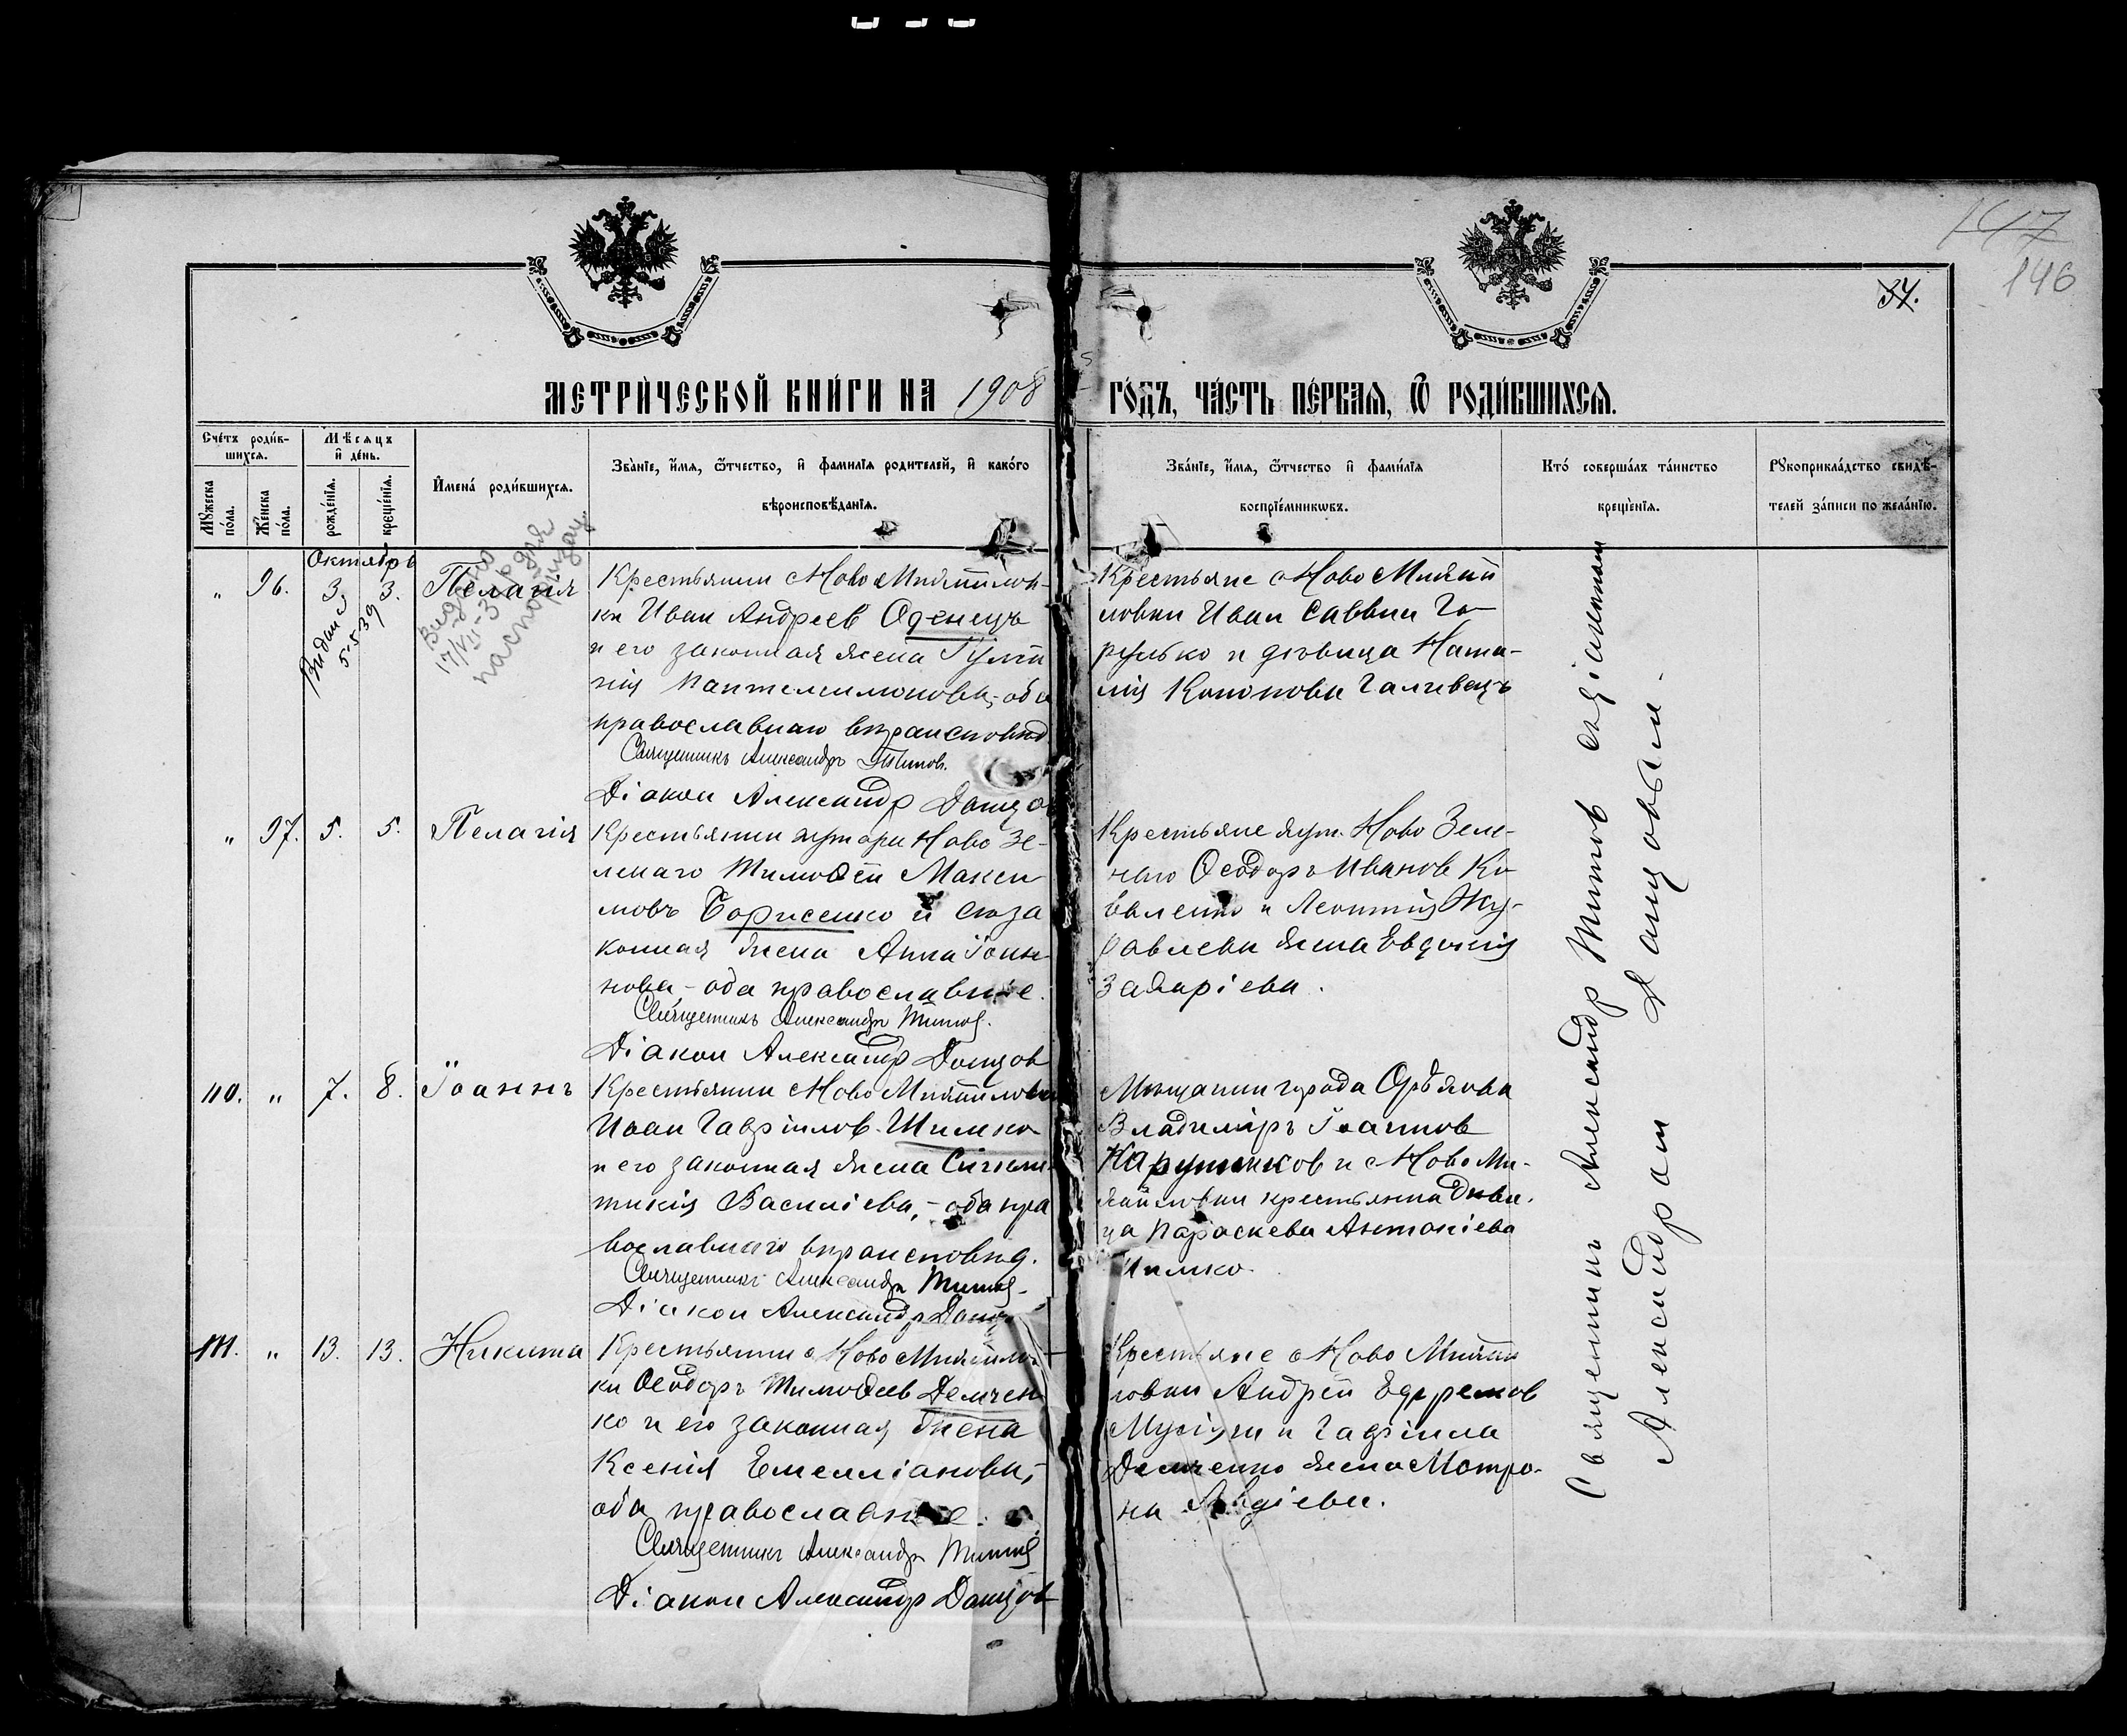 147
146
34.
МЕТРИ́ЧЕСКОЙ КНИ́ГИ НА 1908 ГО́ДЪ, ЧА́СТЬ ПЕ́РВАЯ, Ѿ РОДИ́ВШИХСЯ.
Сче́тъ роди́в-
шихся.
Мѣсяцъ
и де́нь.
Мꙋжеска
по́ла.
Же́нска
по́ла.
рожде́нїя.
креще́нїя.
Имена́ роди́вшихся.
Зва́нїе, и́мя, ѻ́тчество, и фами́лїя родителей, и како́го
вѣроисповѣ́данїя.
Зва́нїе, и́мя, ѻ́тчество и фами́лїя
воспрїе́мникѡвъ.
Кто́ соверша́лъ та́инство
креще́нїя.
Рꙋкоприкла́дство свидѣ́-
телей за́писи по жела́нїю.
Октябрь
„ 96. 3. 3. Пелагія
Выдано
5-5-39
Крестьянин с Ново Михайлов-
ки Иван Андреев Оденецъ
и его законная жена
Пантелеимонова, оба
православнаго вероисповед
Священникъ Александръ Титов.
Діакон Александр Донцов
Крестьяне с Ново Михай
ловки Иван Саввин Го-
рулько и девица Ната-
лія Кононова Галивецъ
„ 97. 5. 5. Пелагія
Крестьянин хутора Ново Зе-
ленаго Тимоѳей Макси
мовъ Борисенко и его за
конная жена Анна Іоан-
нова, - оба православные.
Священникъ Александръ Титов.
Діакон Александр Донцов
Крестьяне хут. Ново Зеле-
наго Ѳеодоръ Иванов Ко
валенко и Леонтія Жу-
равлева жена Евдокия
Захаріева.
110. „ 7. 8. Іоаннъ
Крестьянин с Ново Михайловки
Иван Гавріилов Шимко
и его законная жена Синкли-
тикія Василіева, - оба пра
вославнаго вероисповед.
Священникъ Александръ Титов.
Діакон Александр Донцов
Мещанин города Орехова
Владиміръ Іоаннов
и с Ново Ми-
хайловки крестьянка деви-
ца Параскева Антоніева
Шимко.
111. „ 13. 13. Никита
Крестьянин с Ново Михайлов-
ки Ѳеодоръ Тимоѳеев Демчен-
ко и его законная жена
Ксенія Емелліанова, -
оба православные.
Священникъ Александръ Титов
Діакон Александр Донцов
Крестьяне с Ново Михай
ловки Андрей Ефремов
и Гавріила
Демченко жена Матро-
на Авдіева.
Священник Александр Титов с діаконом
Александром Донцовым.